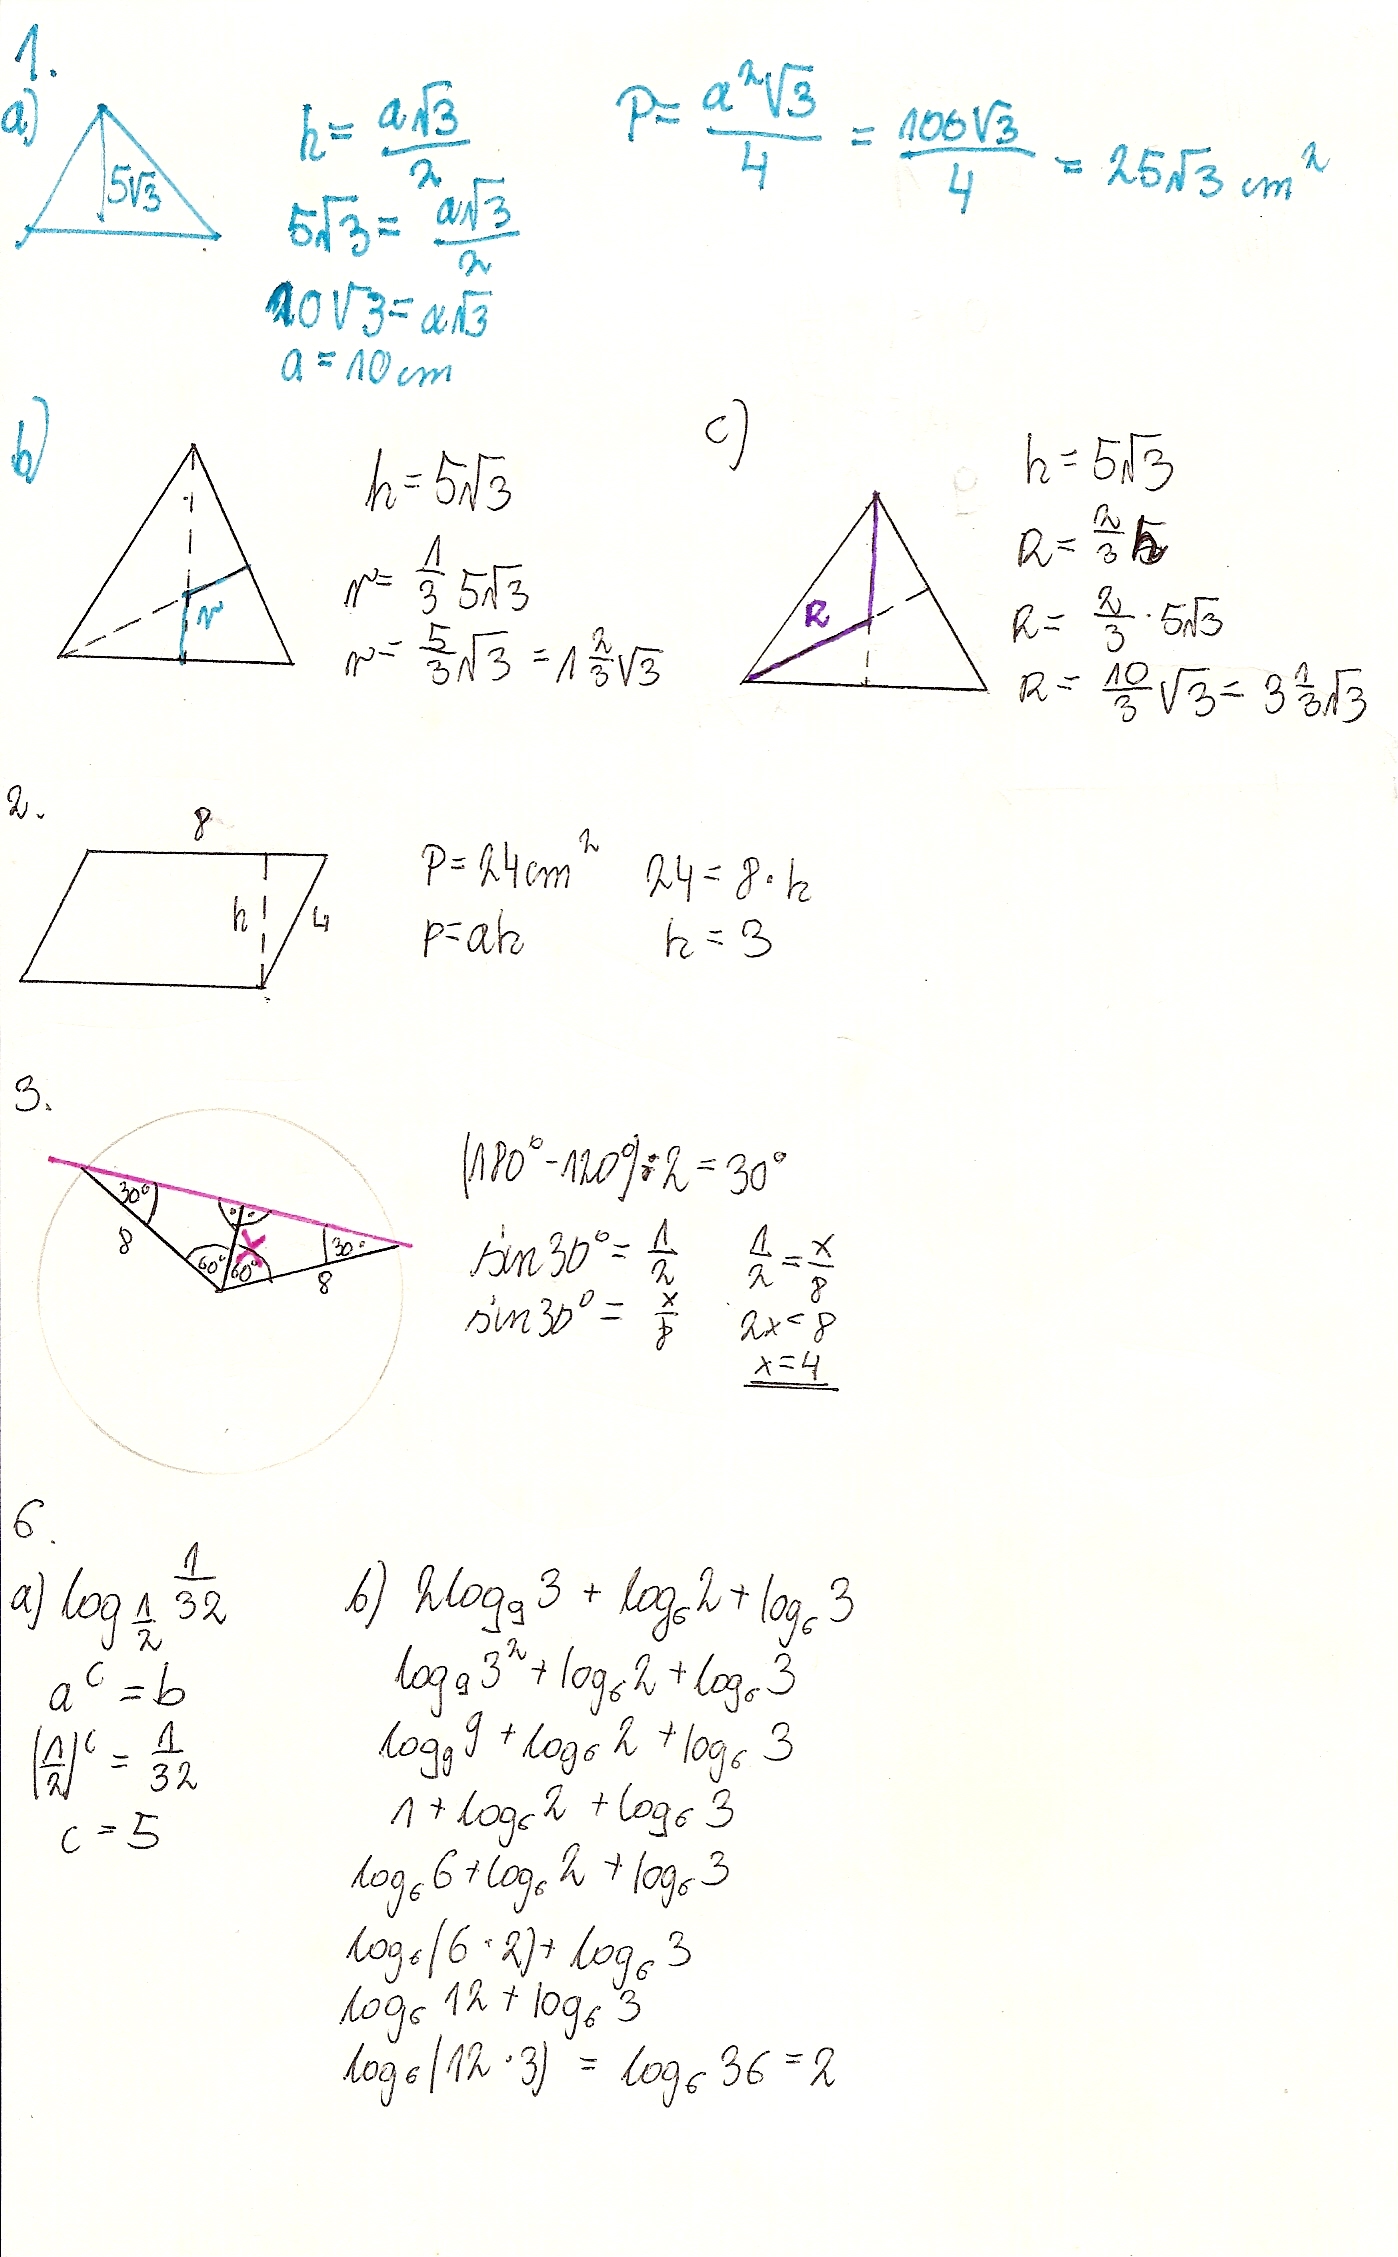 1.
a)
5√3
h = a√3/2
5√3 = a√3/2
10√3 = a√3
a = 10 cm
P = a²√3/4 = 100√3/4 = 25√3 cm²
b)
r
h = 5√3
r = 1/3 5√3
r = 5/3 √3 = 1 2/3 √3
c)
R
h = 5√3
R = 2/3 h
R = 2/3 · 5√3
R = 10/3 √3 = 3 1/3 √3
2.
8
h
4
P = 24 cm²
P = ah
24 = 8 · h
h = 3
3.
30°
8
60°
60°
x
30°
8
(180° - 120°) : 2 = 30°
sin 30° = 1/2
sin 30° = x/8
1/2 = x/8
2x = 8
x = 4
6.
a) log_{1/2} 1/32
a^c = b
(1/2)^c = 1/32
c = 5
b) 2log₉3 + log₆2 + log₆3
log₉3² + log₆2 + log₆3
log₉9 + log₆2 + log₆3
1 + log₆2 + log₆3
log₆6 + log₆2 + log₆3
log₆(6 · 2) + log₆3
log₆12 + log₆3
log₆(12 · 3) = log₆36 = 2